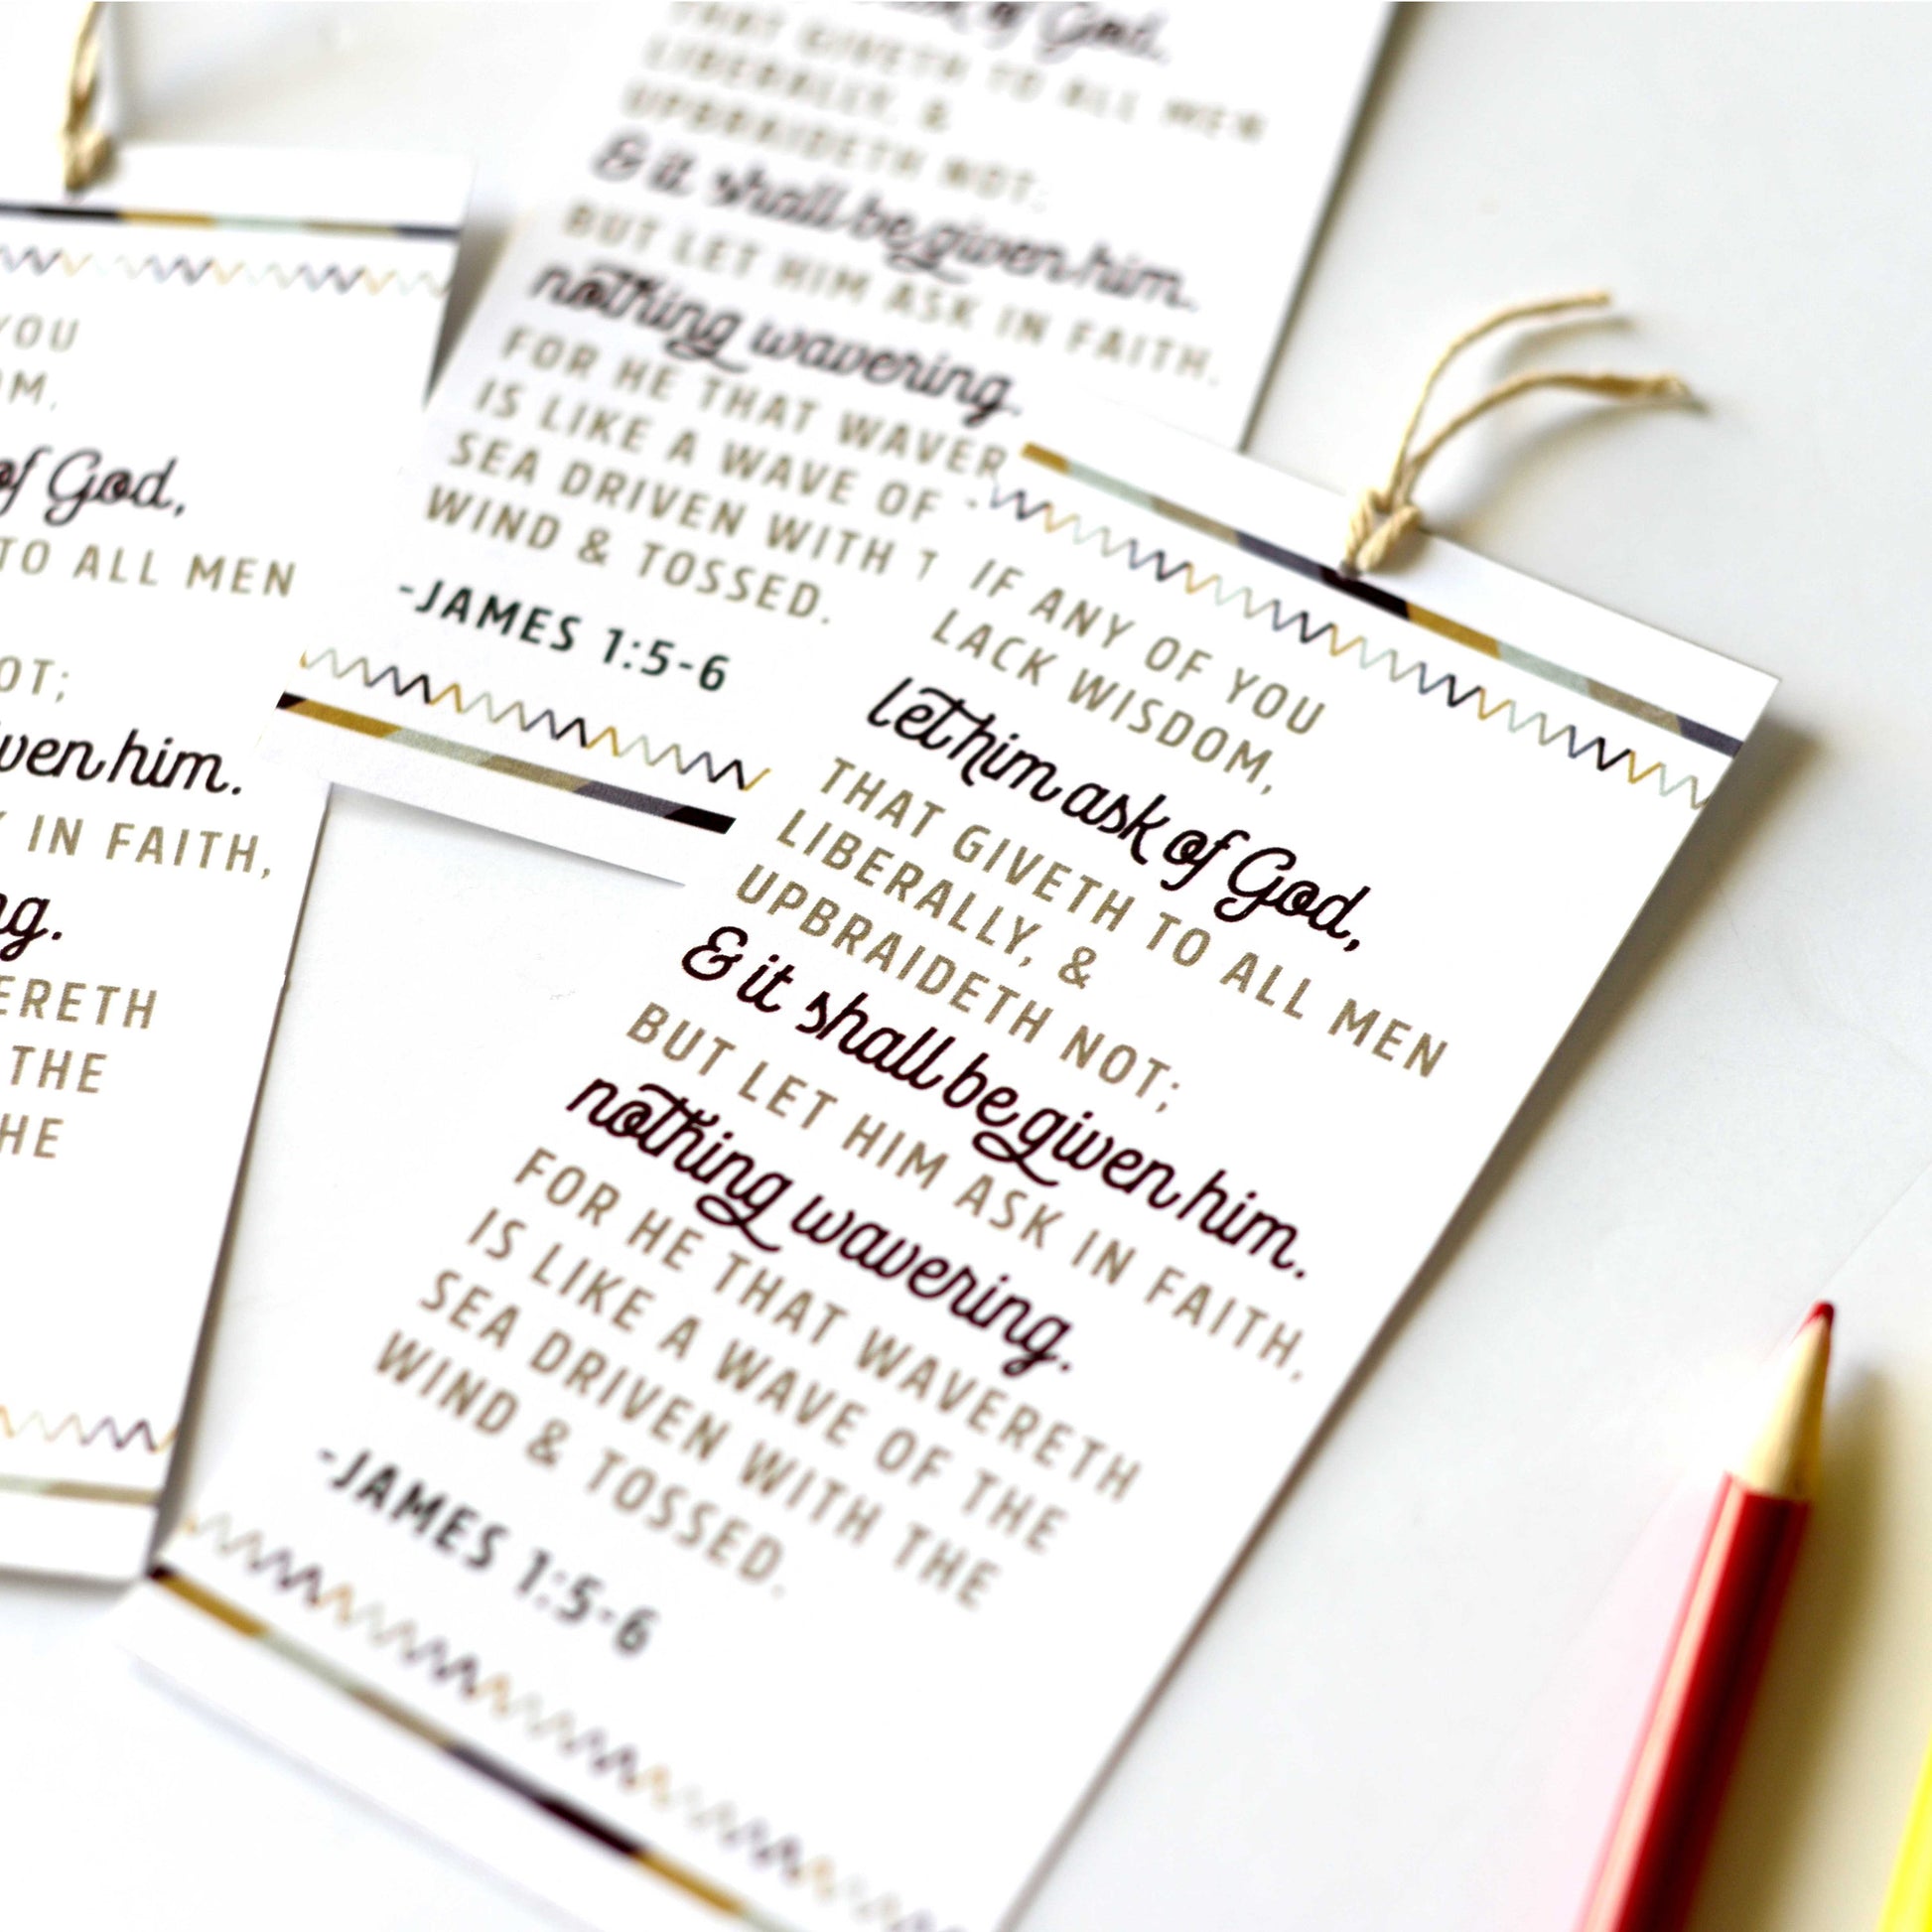 YOU
OM,
of God,
TO ALL MEN
OT;
ven him.
IN FAITH,
ng.
ERETH
THE
HE
of God,
THAT GIVETH TO ALL MEN
LIBERALLY, &
UPBRAIDETH NOT;
& it shall be given him.
BUT LET HIM ASK IN FAITH,
nothing wavering.
FOR HE THAT WAVER
IS LIKE A WAVE OF
SEA DRIVEN WITH T
WIND & TOSSED.
-JAMES 1:5-6
IF ANY OF YOU
LACK WISDOM,
let him ask of God,
THAT GIVETH TO ALL MEN
LIBERALLY, &
UPBRAIDETH NOT;
& it shall be given him.
BUT LET HIM ASK IN FAITH,
nothing wavering.
FOR HE THAT WAVERETH
IS LIKE A WAVE OF THE
SEA DRIVEN WITH THE
WIND & TOSSED.
-JAMES 1:5-6